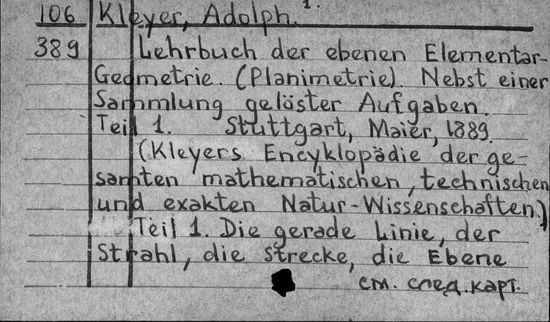 106 Kleyer, Adolph. 1.
389 Lehrbuch der ebenen Elementar-
Geometrie. (Planimetrie). Nebst einer
Sammlung gelöster Aufgaben.
Teil 1. Stuttgart, Maier, 1889.
(Kleyers Encyklopädie der ge-
samten mathematischen, technischen
und exakten Natur-Wissenschaften.)
Teil 1. Die gerade Linie, der
Strahl, die Strecke, die Ebene
см. след. карт.